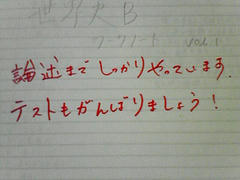 世界史B
ワークノート vol.1
論述まで しっかりやっています.
テストもがんばりましょう!